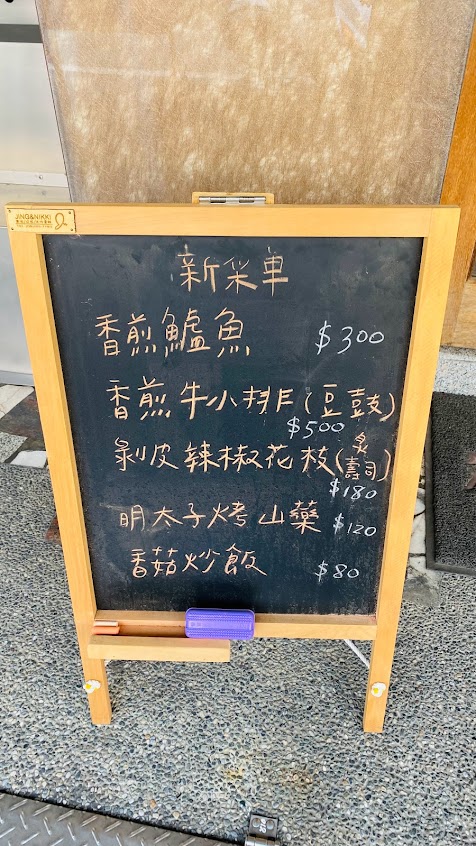 JING&NIKKI
新菜單
香煎鱸魚 $300
香煎牛小排(豆豉)
$500
剝皮辣椒花枝(壽司)
$180
明太子烤山藥 $120
香菇炒飯 $80